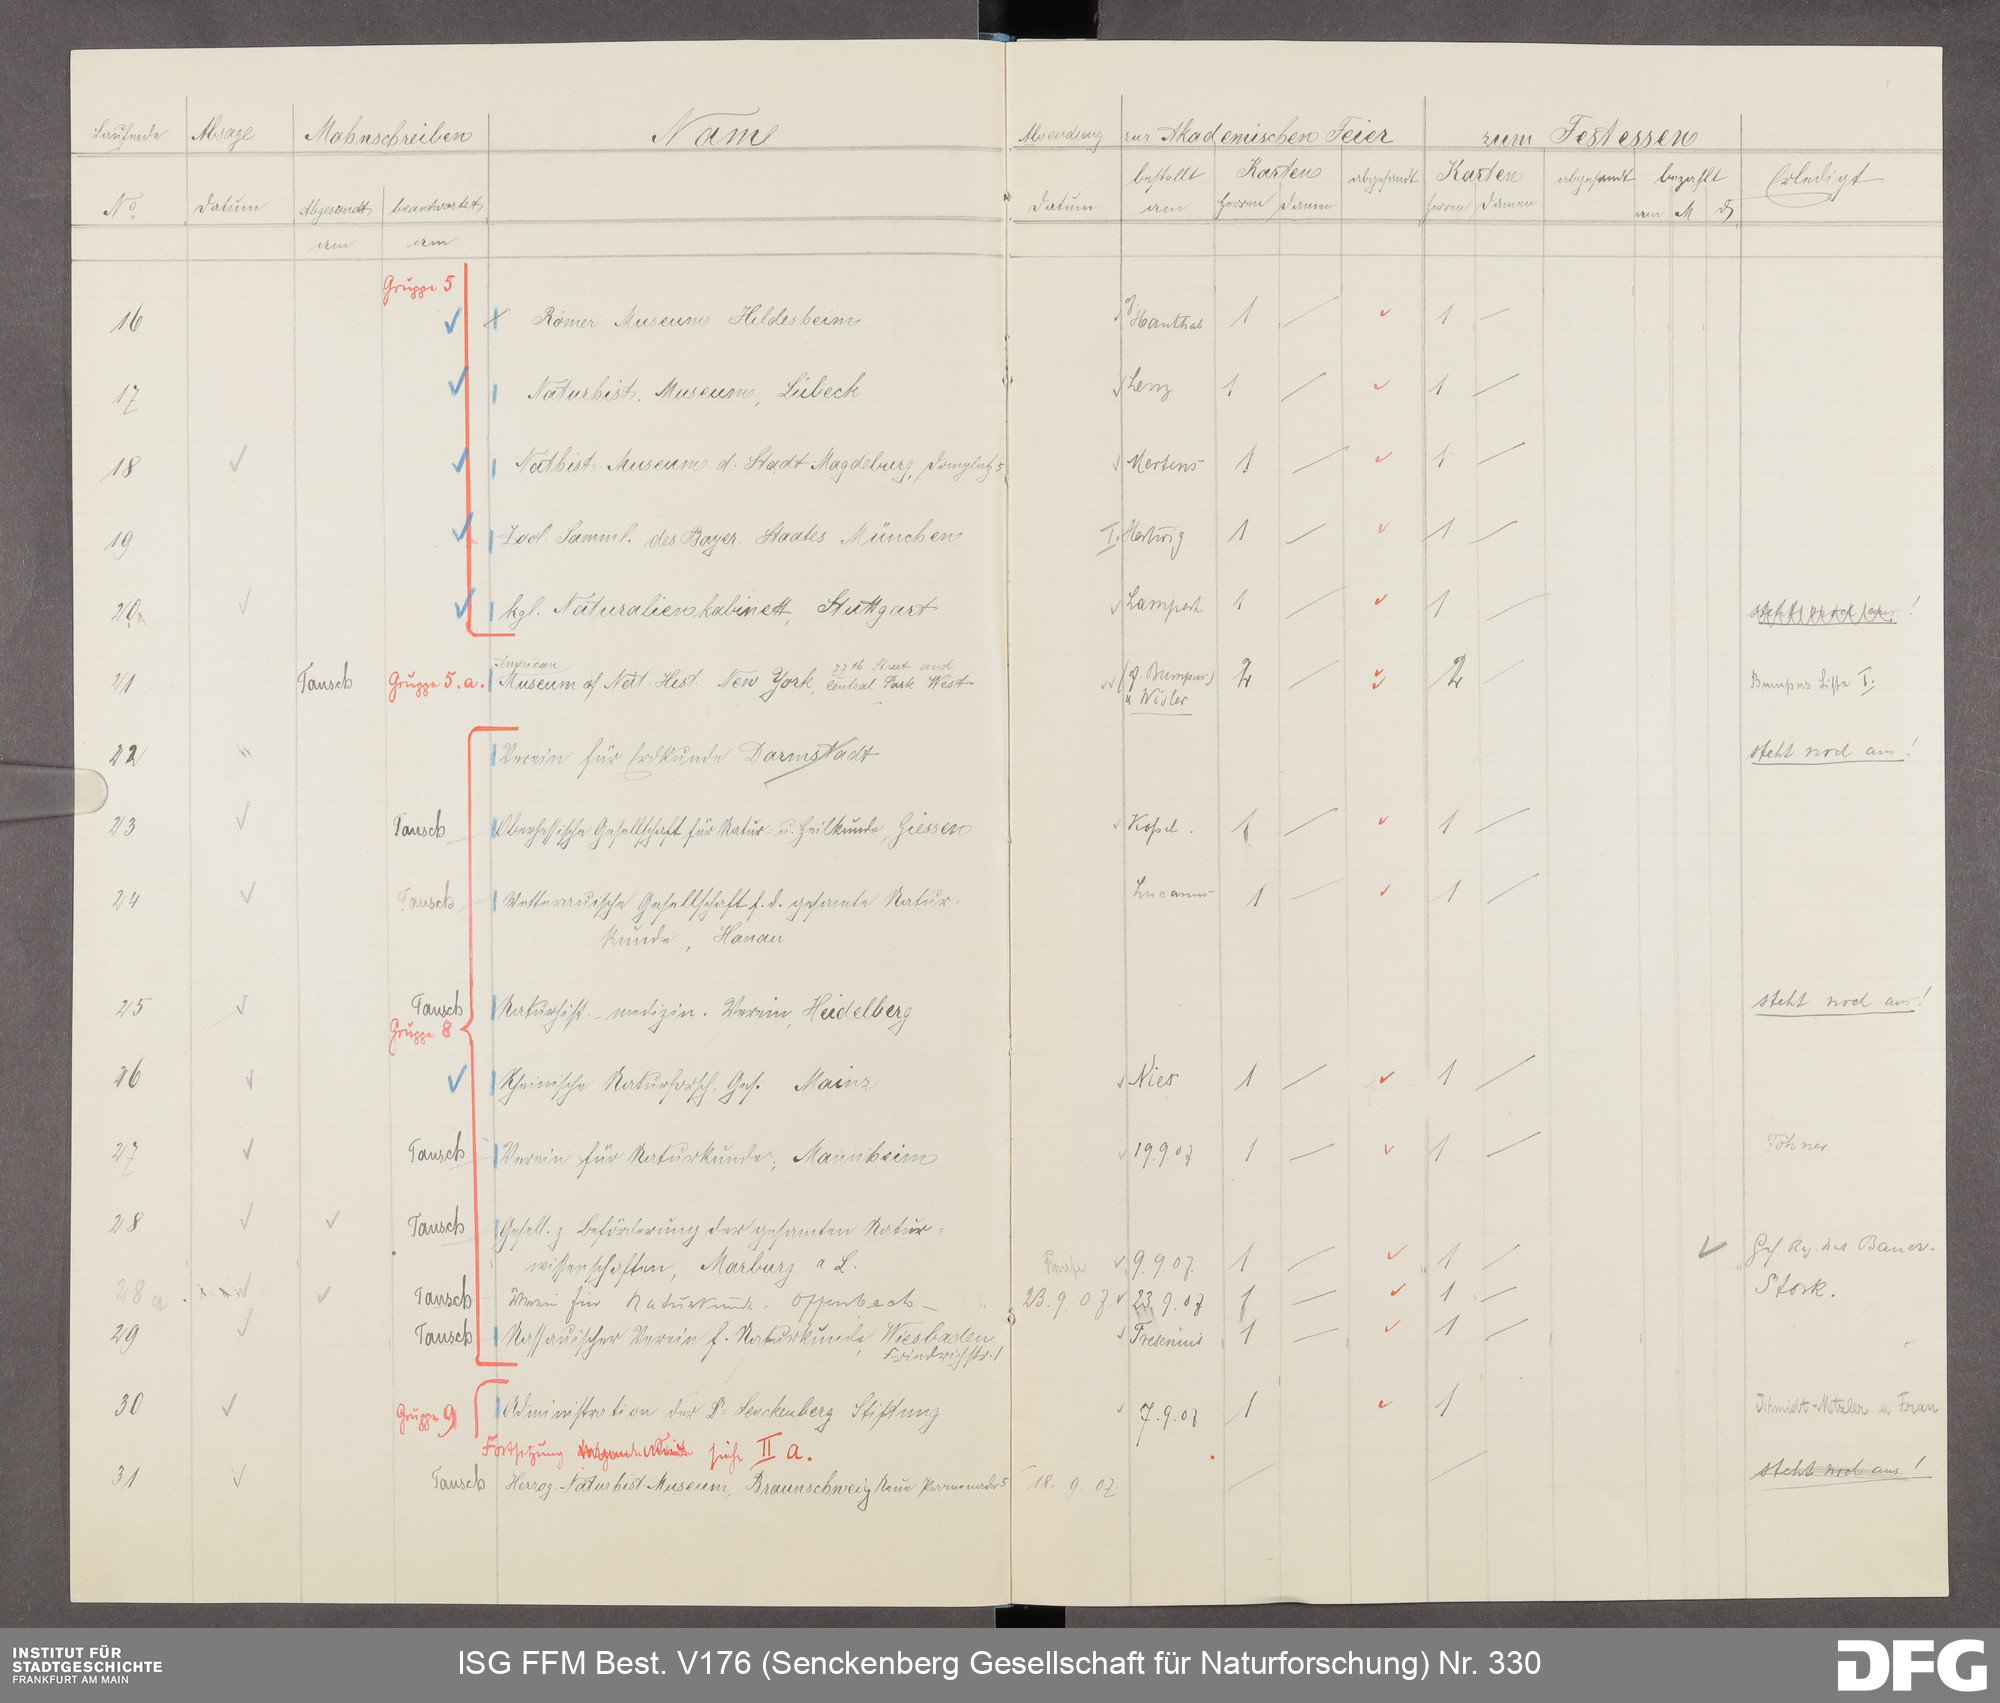 Laufende Absage Mahnschreiben Name Absendung zur Akademischen Feier zum Festessen
No Datum Abgesandt beantwortet Datum bestellt Karten abgesandt Karten abgesandt bezahlt Erledigt
am am am Herren Damen Herren Damen am M
Gruppe 5
16 Römer Museum Hildesheim Hauthal 1 1
17 Naturhist. Museum, Lübeck Lenz 1 1
18 Nathist. Museum d. Stadt Magdeburg, Domplatz 5 Mertens 1 1
19 Zool. Samml. des Bayer. Staates München I. Hertwig 1 1
20 kgl. Naturalienkabinett, Stuttgart Lampert 1 1 steht noch aus!
21 Tausch Gruppe 5.a. American Museum of Nat. Hist. New York, 77th Street and Central Park West (Bumpus) u Wisler 2 2 Bumpus Liste I.
22 Verein für Erdkunde Darmstadt steht noch aus!
23 Tausch Oberhessische Gesellschaft für Natur- u. Heilkunde, Giessen 1 1
24 Tausch Wetterauische Gesellschaft f. d. gesamte Natur-
kunde, Hanau Lucanus 1 1
25 Tausch Naturhist.-medizin. Verein, Heidelberg steht noch aus!
Gruppe 8
26 Rheinische Naturforsch. Ges. Mainz Nies 1 1
27 Tausch Verein für Naturkunde, Mannheim 19.9.07 1 1 Föhner
28 Tausch Gesell. z. Beförderung der gesamten Natur-
wissenschaften, Marburg a L. 9.9.07. 1 1 Bauer.
28a Tausch Verein für Naturkunde. Offenbach 23.9.07 23.9.07 1 1 Stork.
29 Tausch Nassauischer Verein f. Naturkunde, Wiesbaden Fresenius 1 1
Friedrichstr. 1
30 Gruppe 9 Administration der Dr. Senckenberg Stiftung 7.9.07 1 1 Schmidt-Metzler u Frau
Fortsetzung siehe II a.
31 Tausch Herzog. Naturhist. Museum, Braunschweig Neue Promenade 5 18.9.07. steht noch aus!
INSTITUT FÜR
STADTGESCHICHTE
FRANKFURT AM MAIN
ISG FFM Best. V176 (Senckenberg Gesellschaft für Naturforschung) Nr. 330
DFG